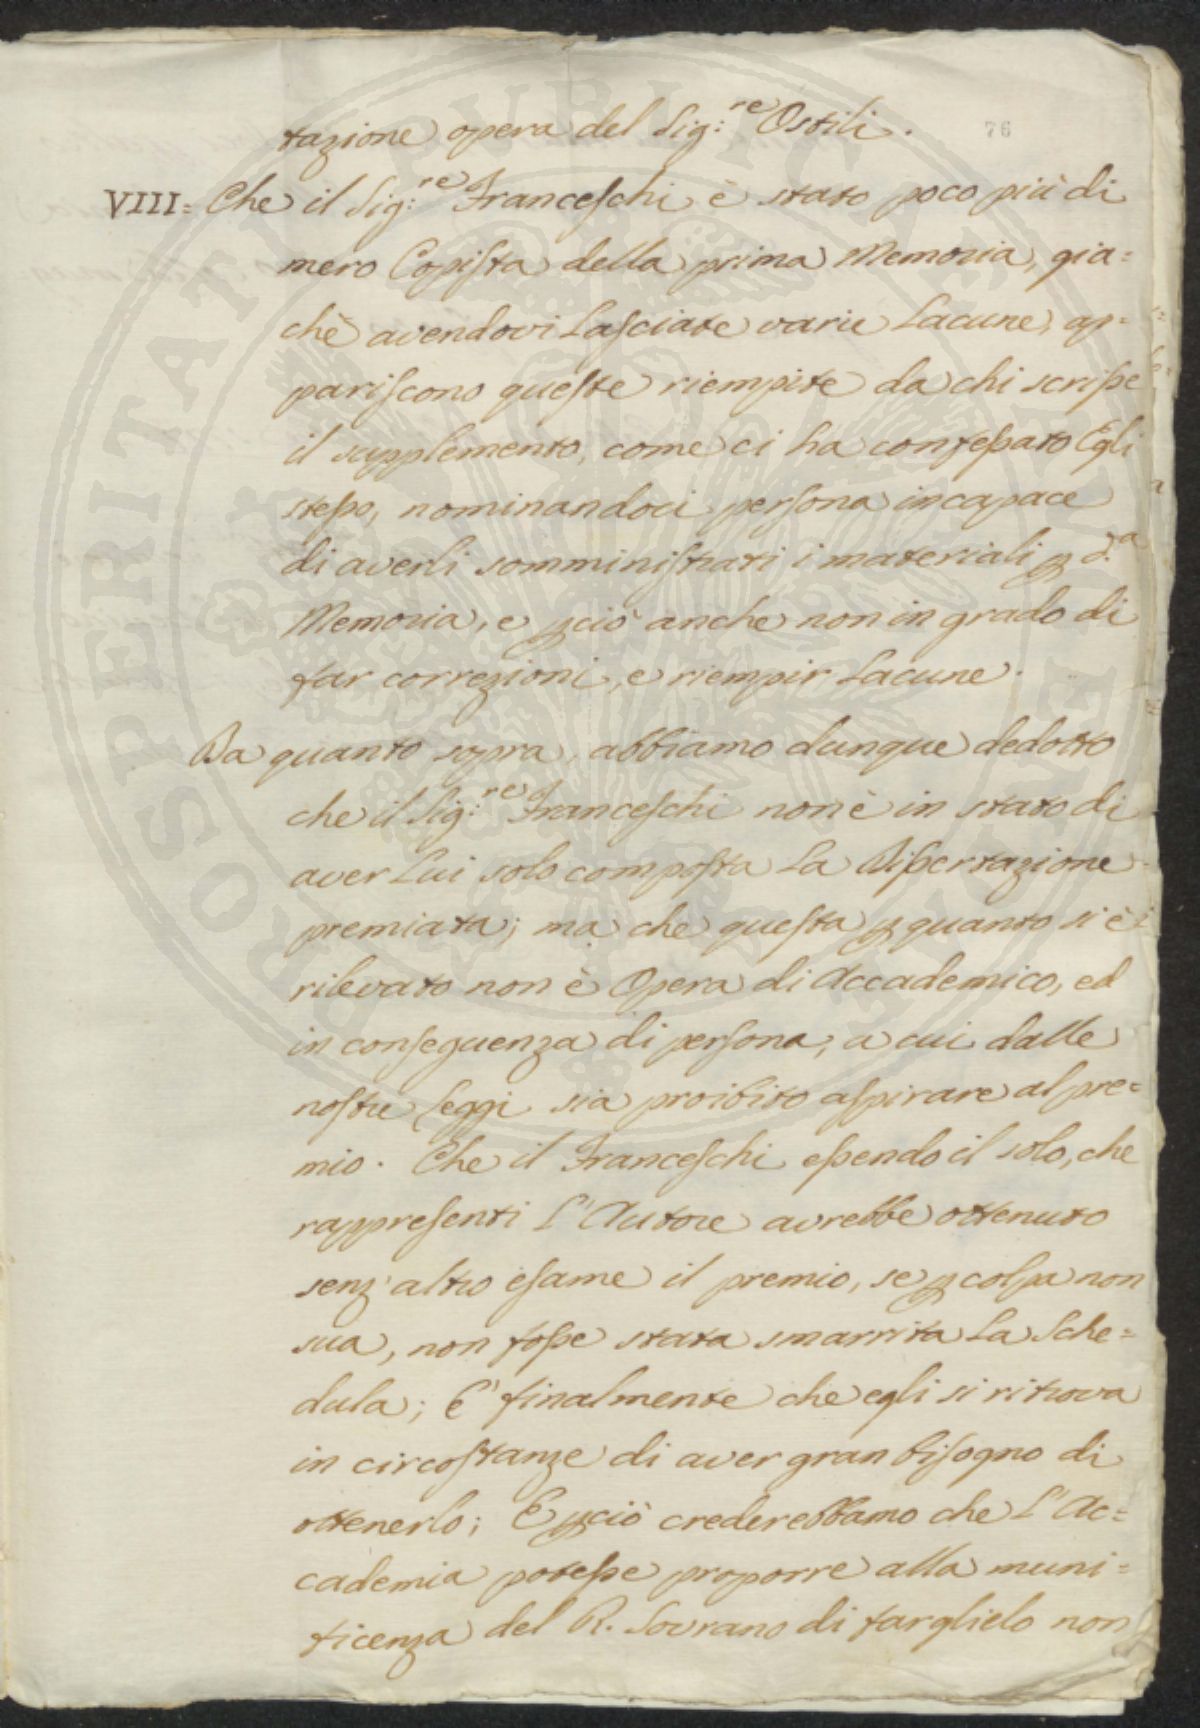 76
tazione opera del Sig:re Ostili.
VIII= Che il Sig:re Franceschi è stato poco più di
mero Copista della prima Memoria, gia=
chè avendovi lasciate varie lacune, ap=
pariscono queste riempite da chi scrisse
il supplemento, come ci ha confessato Egli
stesso, nominandoci persona incapace
di averli somministrati i materiali p d.a
Memoria, e pciò anche non in grado di
far correzioni, e riempir lacune.
Da quanto sopra, abbiamo dunque dedotto
che il Sig:re Franceschi non è in stato di
aver lui solo composta la Dissertazione
premiata; ma che questa p quanto si è
rilevato non è Opera di Accademico, ed
in conseguenza di persona, a cui dalle
nostre Leggi sia proibito aspirare al pre=
mio. Che il Franceschi essendo il solo, che
rappresenti l'Autore avrebbe ottenuto
senz'altro esame il premio, se p colpa non
sua, non fosse stata smarrita la Sche=
dula; E' finalmente che egli si ritrova
in circostanze di aver gran bisogno di
ottenerlo; E pciò crederebbamo che l'Ac=
cademia potesse proporre alla muni=
ficenza del R. Sovrano di farglielo non
PROSPERITATI PUBLICAE